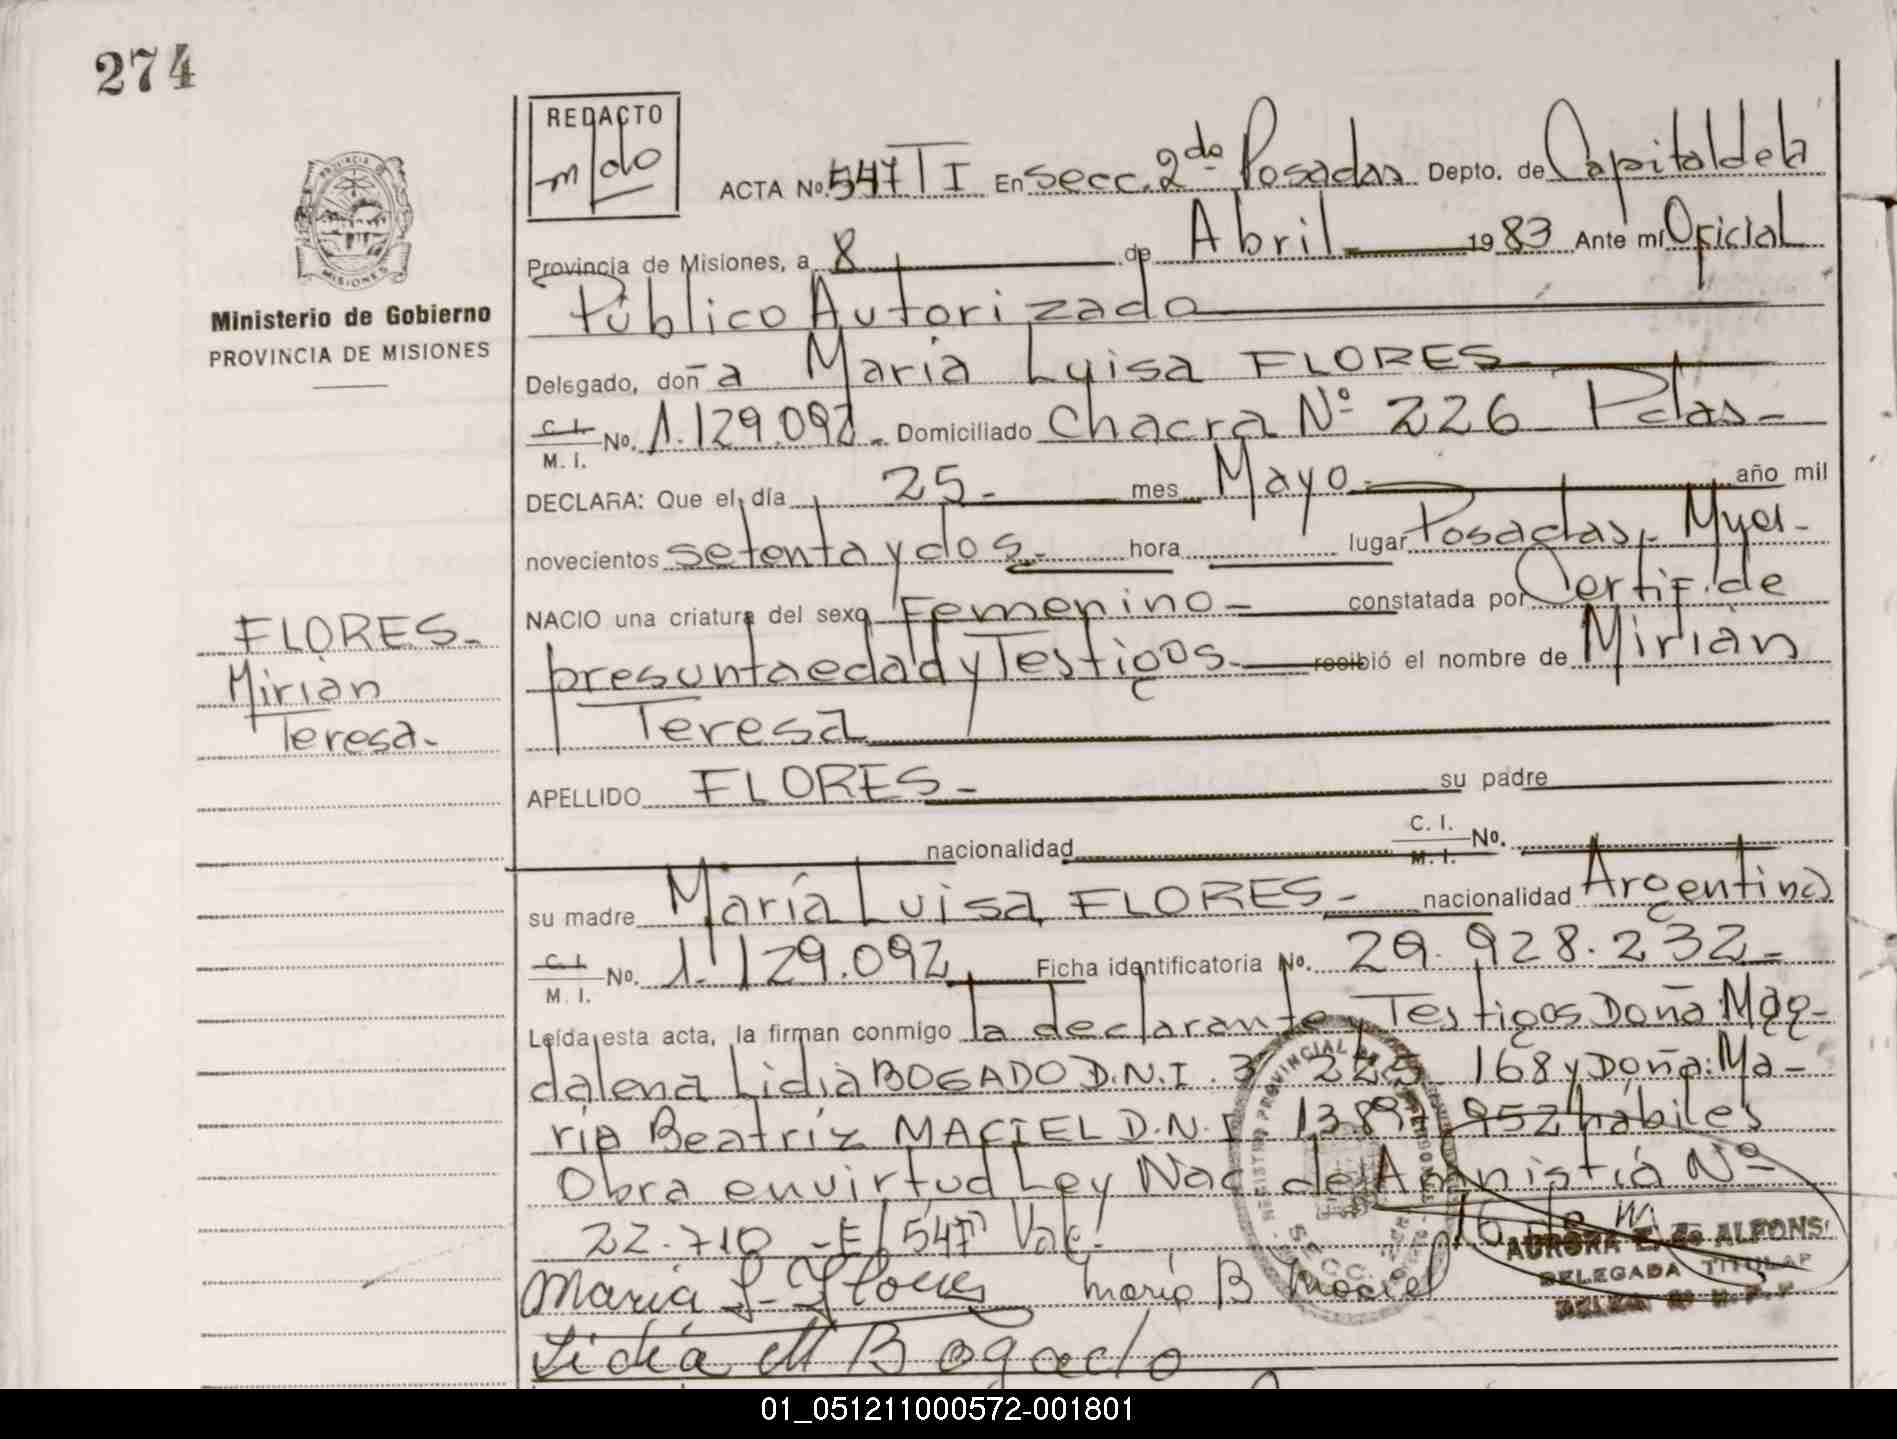 274
REDACTO
PROVINCIA DE
MISIONES
Ministerio de Gobierno
PROVINCIA DE MISIONES
ACTA No. 547 TI En Secc. 2da Posadas Depto. de Capital de la
Provincia de Misiones, a 8 de Abril 1983 Ante mi Oficial
Público Autorizado
Delegado, doña María Luisa FLORES
C. I.
M. I. No. 1.129.092. Domiciliado Chacra Nº 226 Pdas-
DECLARA: Que el día 25- mes Mayo- año mil
novecientos setenta y dos- hora lugar Posadas, Mnes-
NACIO una criatura del sexo Femenino- constatada por Certif. de
presunta edad y Testigos- recibió el nombre de Mirian
Teresa
FLORES-
Mirian
Teresa-
APELLIDO FLORES- su padre
nacionalidad C. I.
M. I. No.
su madre María Luisa FLORES- nacionalidad Argentina
C. I.
M. I. No. 1.129.092 Ficha identificatoria No. 29.928.232-
Leída esta acta, la firman conmigo la declarante y Testigos Doña: Mag-
dalena Lidia BOGADO D.N.I. 168 y Doña: Ma-
ria Beatríz MACIEL D.N.I 952 hábiles
Obra en virtud Ley Nac de Amnistía Nº
22.710 -E/ 547 Vale-
AURORA E. de ALFONS
DELEGADA TITULAR
María L. Flores María B Maciel
Lidia M Bogado
01_051211000572-001801